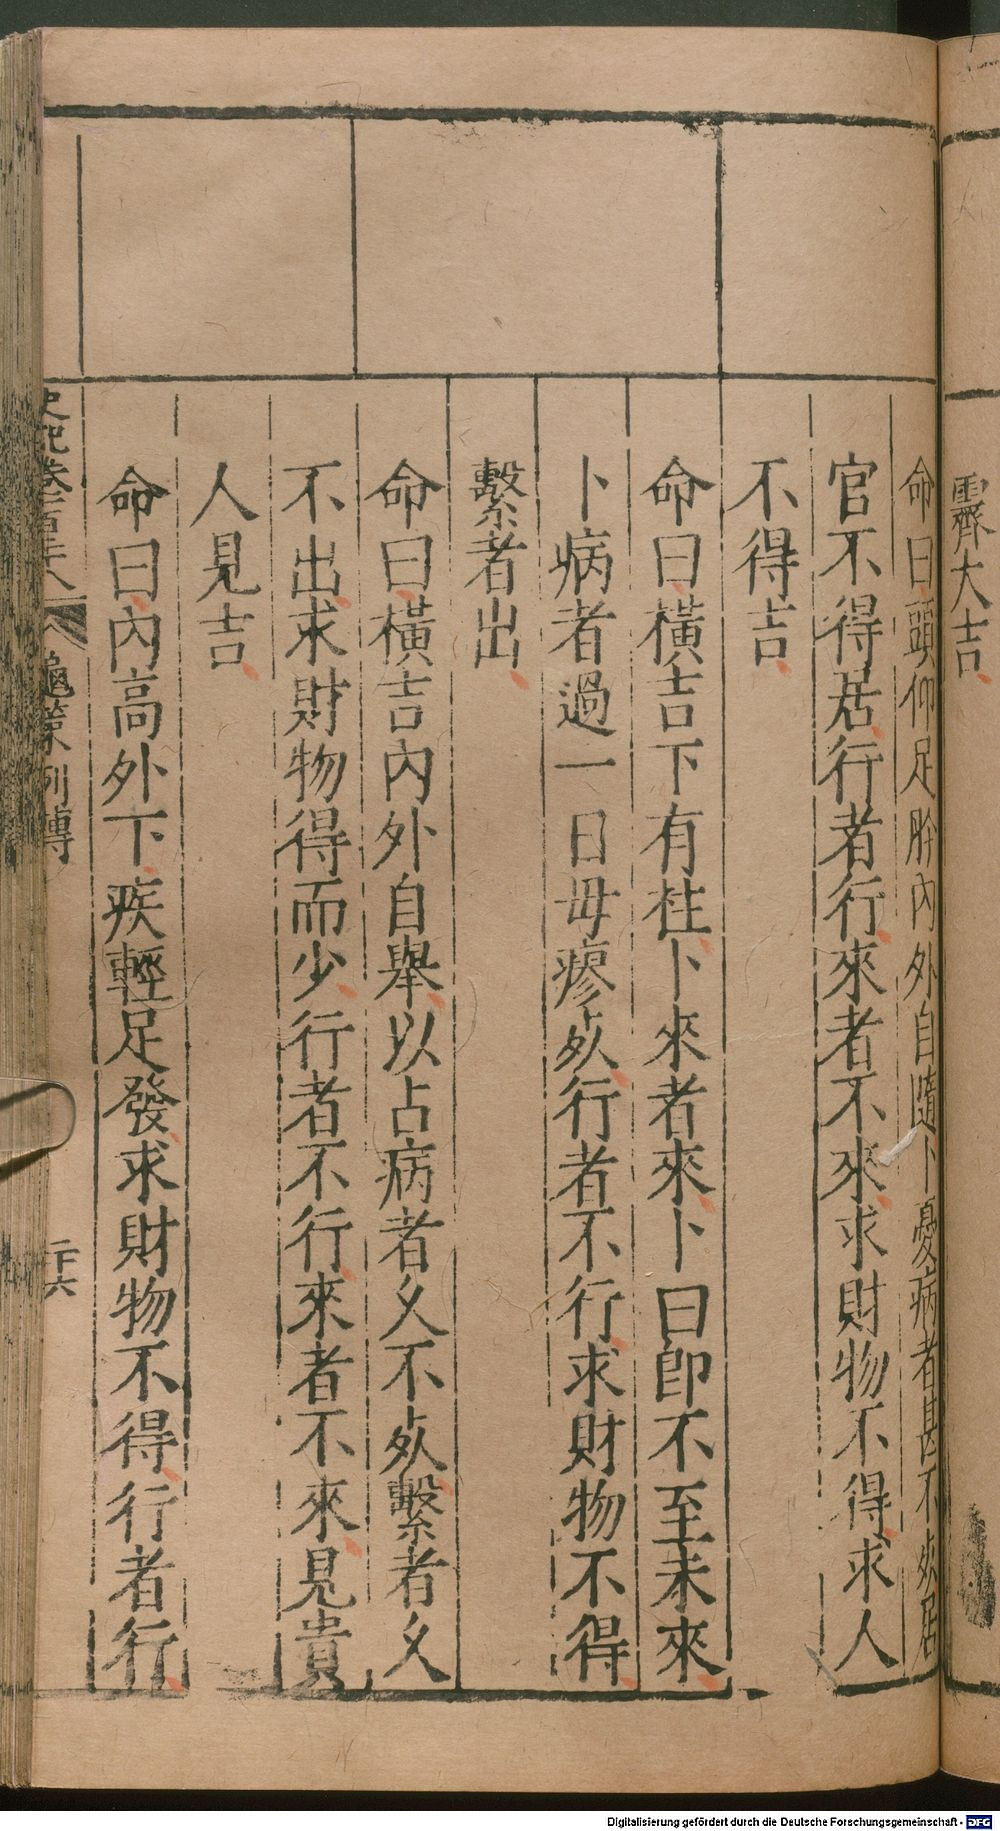 霽大吉
命曰頭仰足肣內外自隨卜憂病者甚不死居
官不得居行者行來者不來求財物不得求人
不得吉
命曰橫吉下有柱卜來者來卜曰卽不至未來
卜病者過一日毋瘳死行者不行求財物不得
繫者出
命曰橫吉內外自舉以占病者久不死繫者久
不出求財物得而少行者不行來者不來見貴
人見吉
命曰內高外下疾輕足發求財物不得行者行
史記卷一百二十八 龜策列傳 二十六
Digitalisierung gefördert durch die Deutsche Forschungsgemeinschaft - DFG